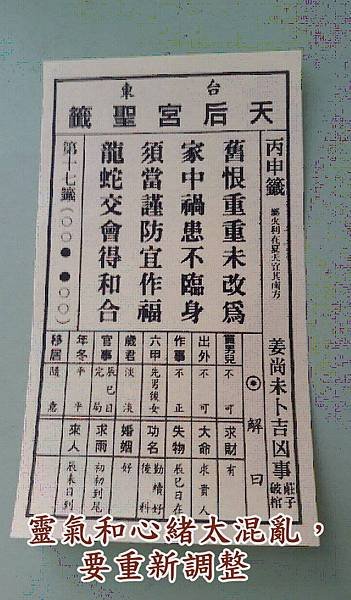 台東
天后宮聖籤
丙申籤 屬火利在夏天宜其南方
舊恨重重未改為
家中禍患不臨身
須當謹防宜作福
龍蛇交會得和合
第十七籤(○○●●○○)
姜尚未卜吉凶事 莊子破棺
解曰
不可
求財 有
出外 不可
大命 求貴人
作事 不正
失物 辰巳日在
六甲 先男後女
功名 後科
歲君 淡淡
婚姻 好
官事 辰巳日
求雨 初初到尾
年冬 平平
來人 日到
移居 隨意
靈氣和心緒太混亂，
要重新調整